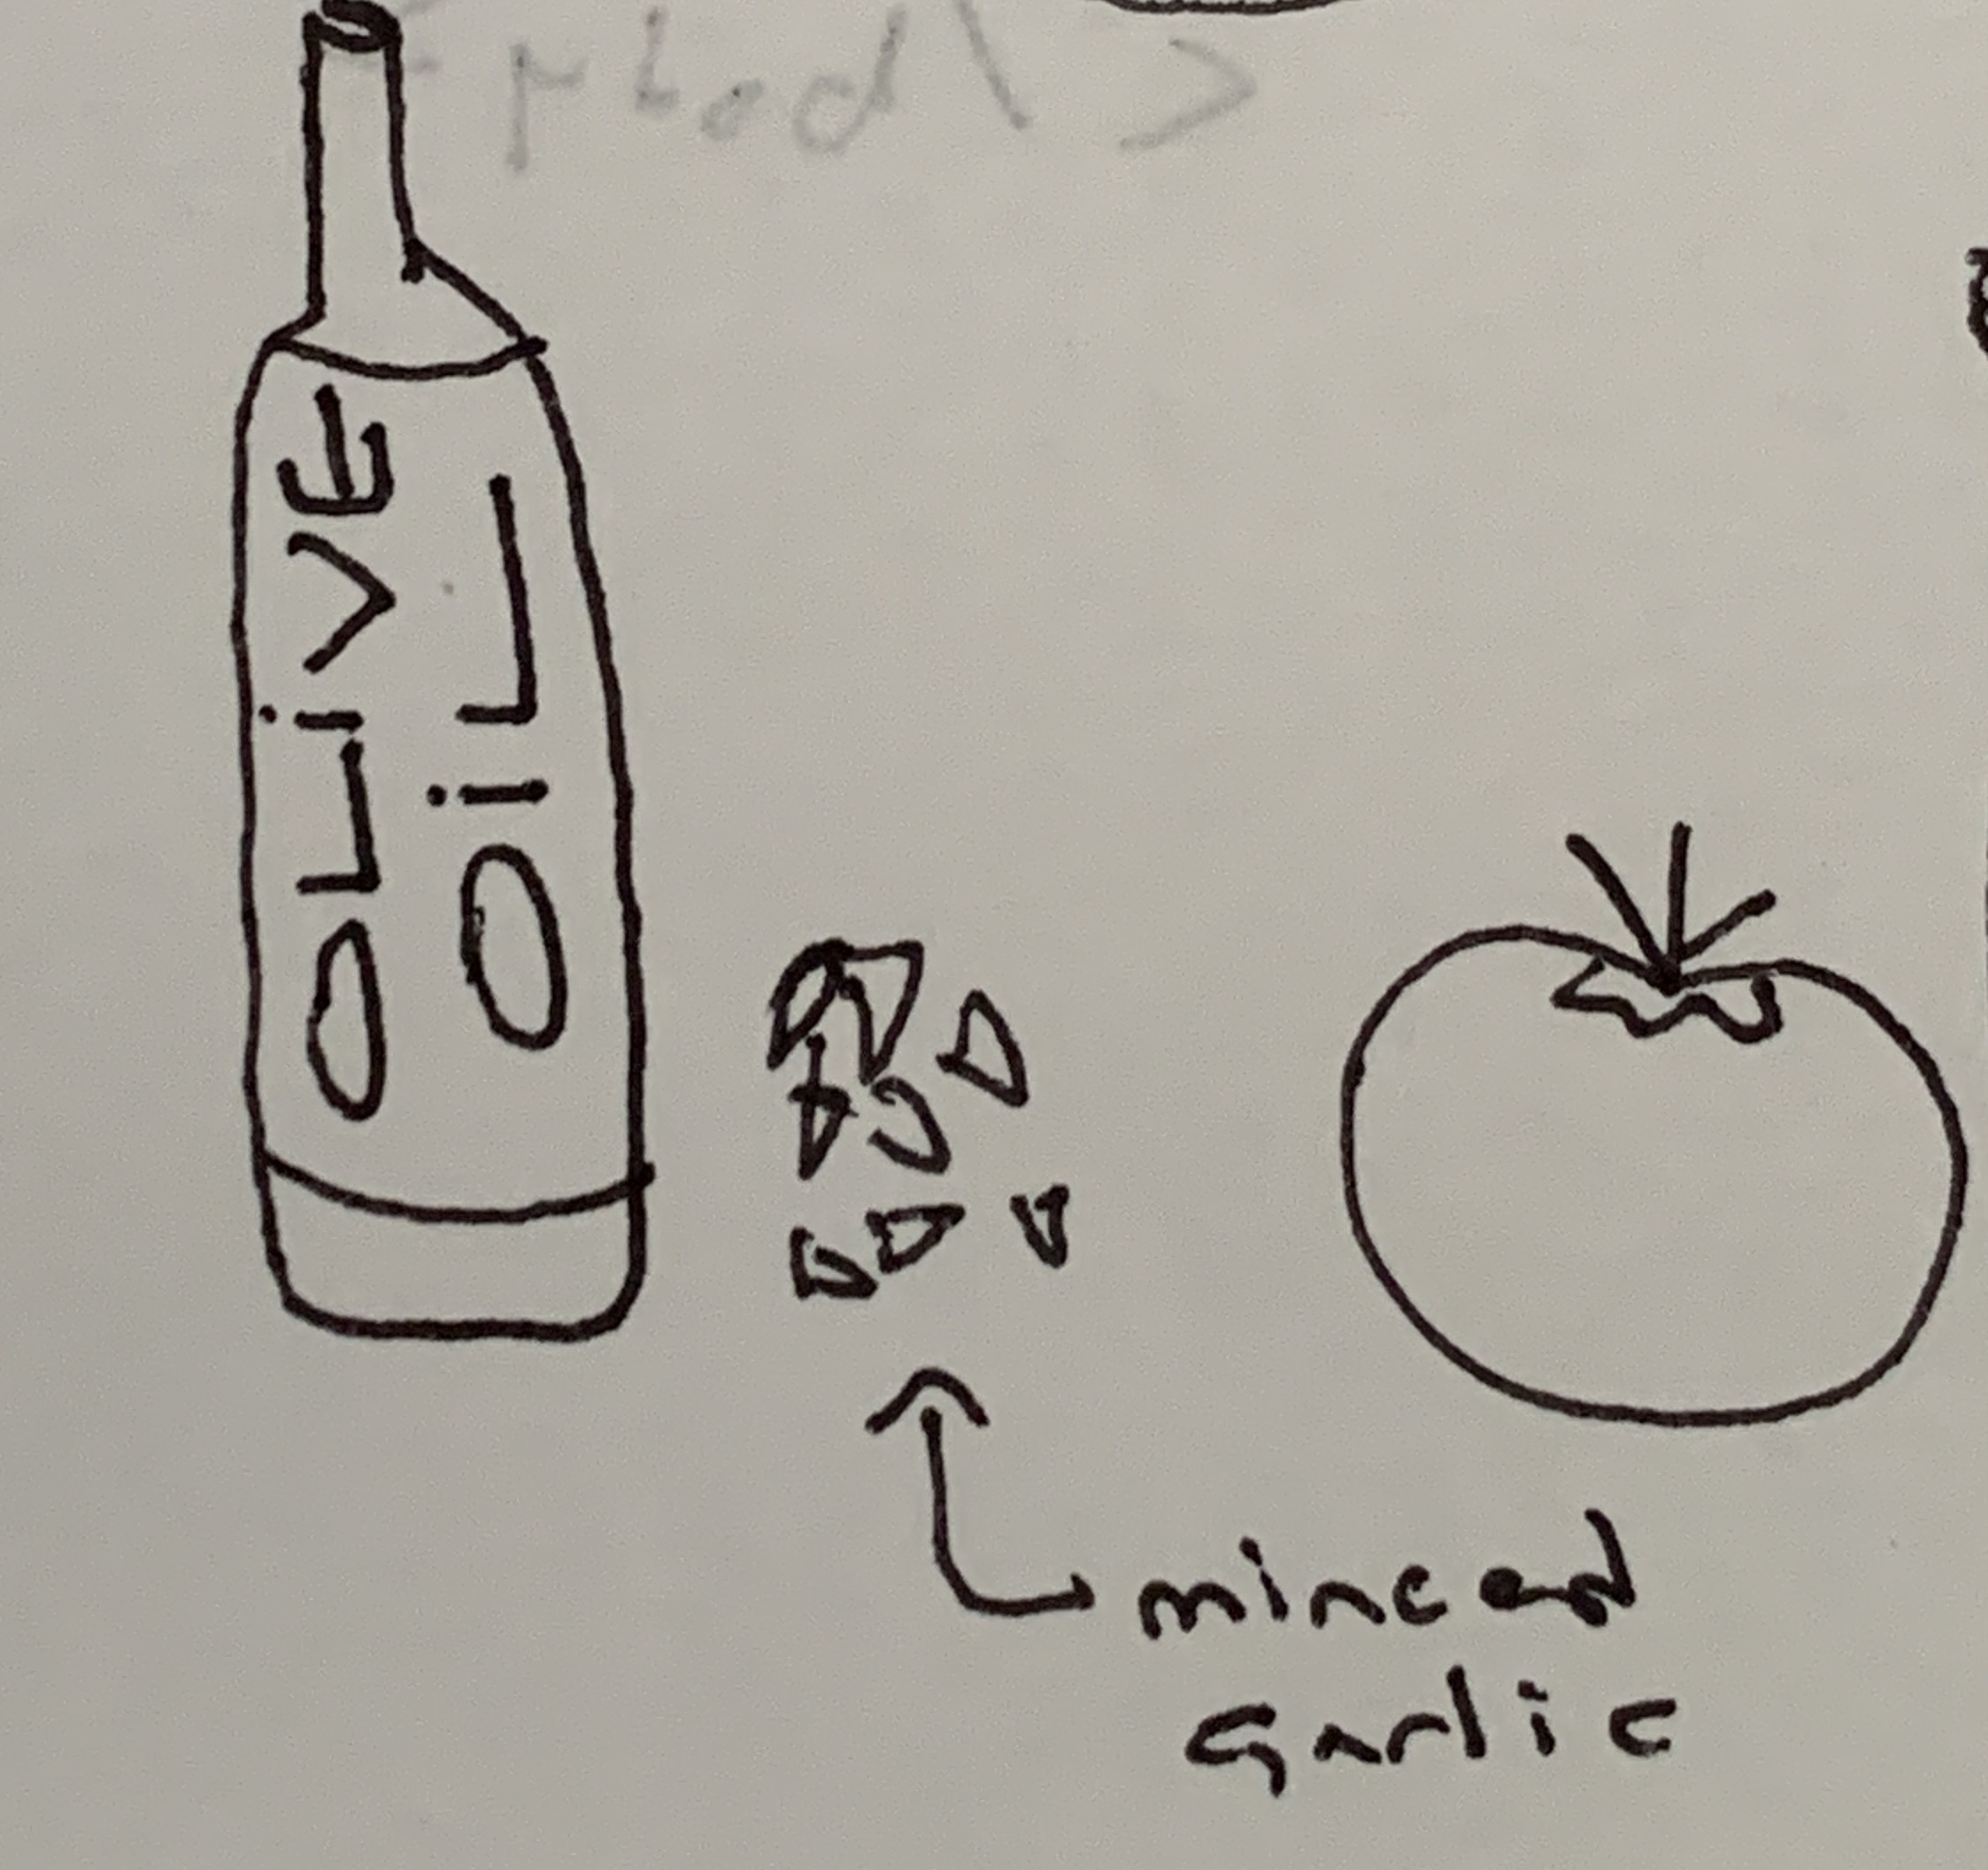 OLiVE
OiL
minced
garlic